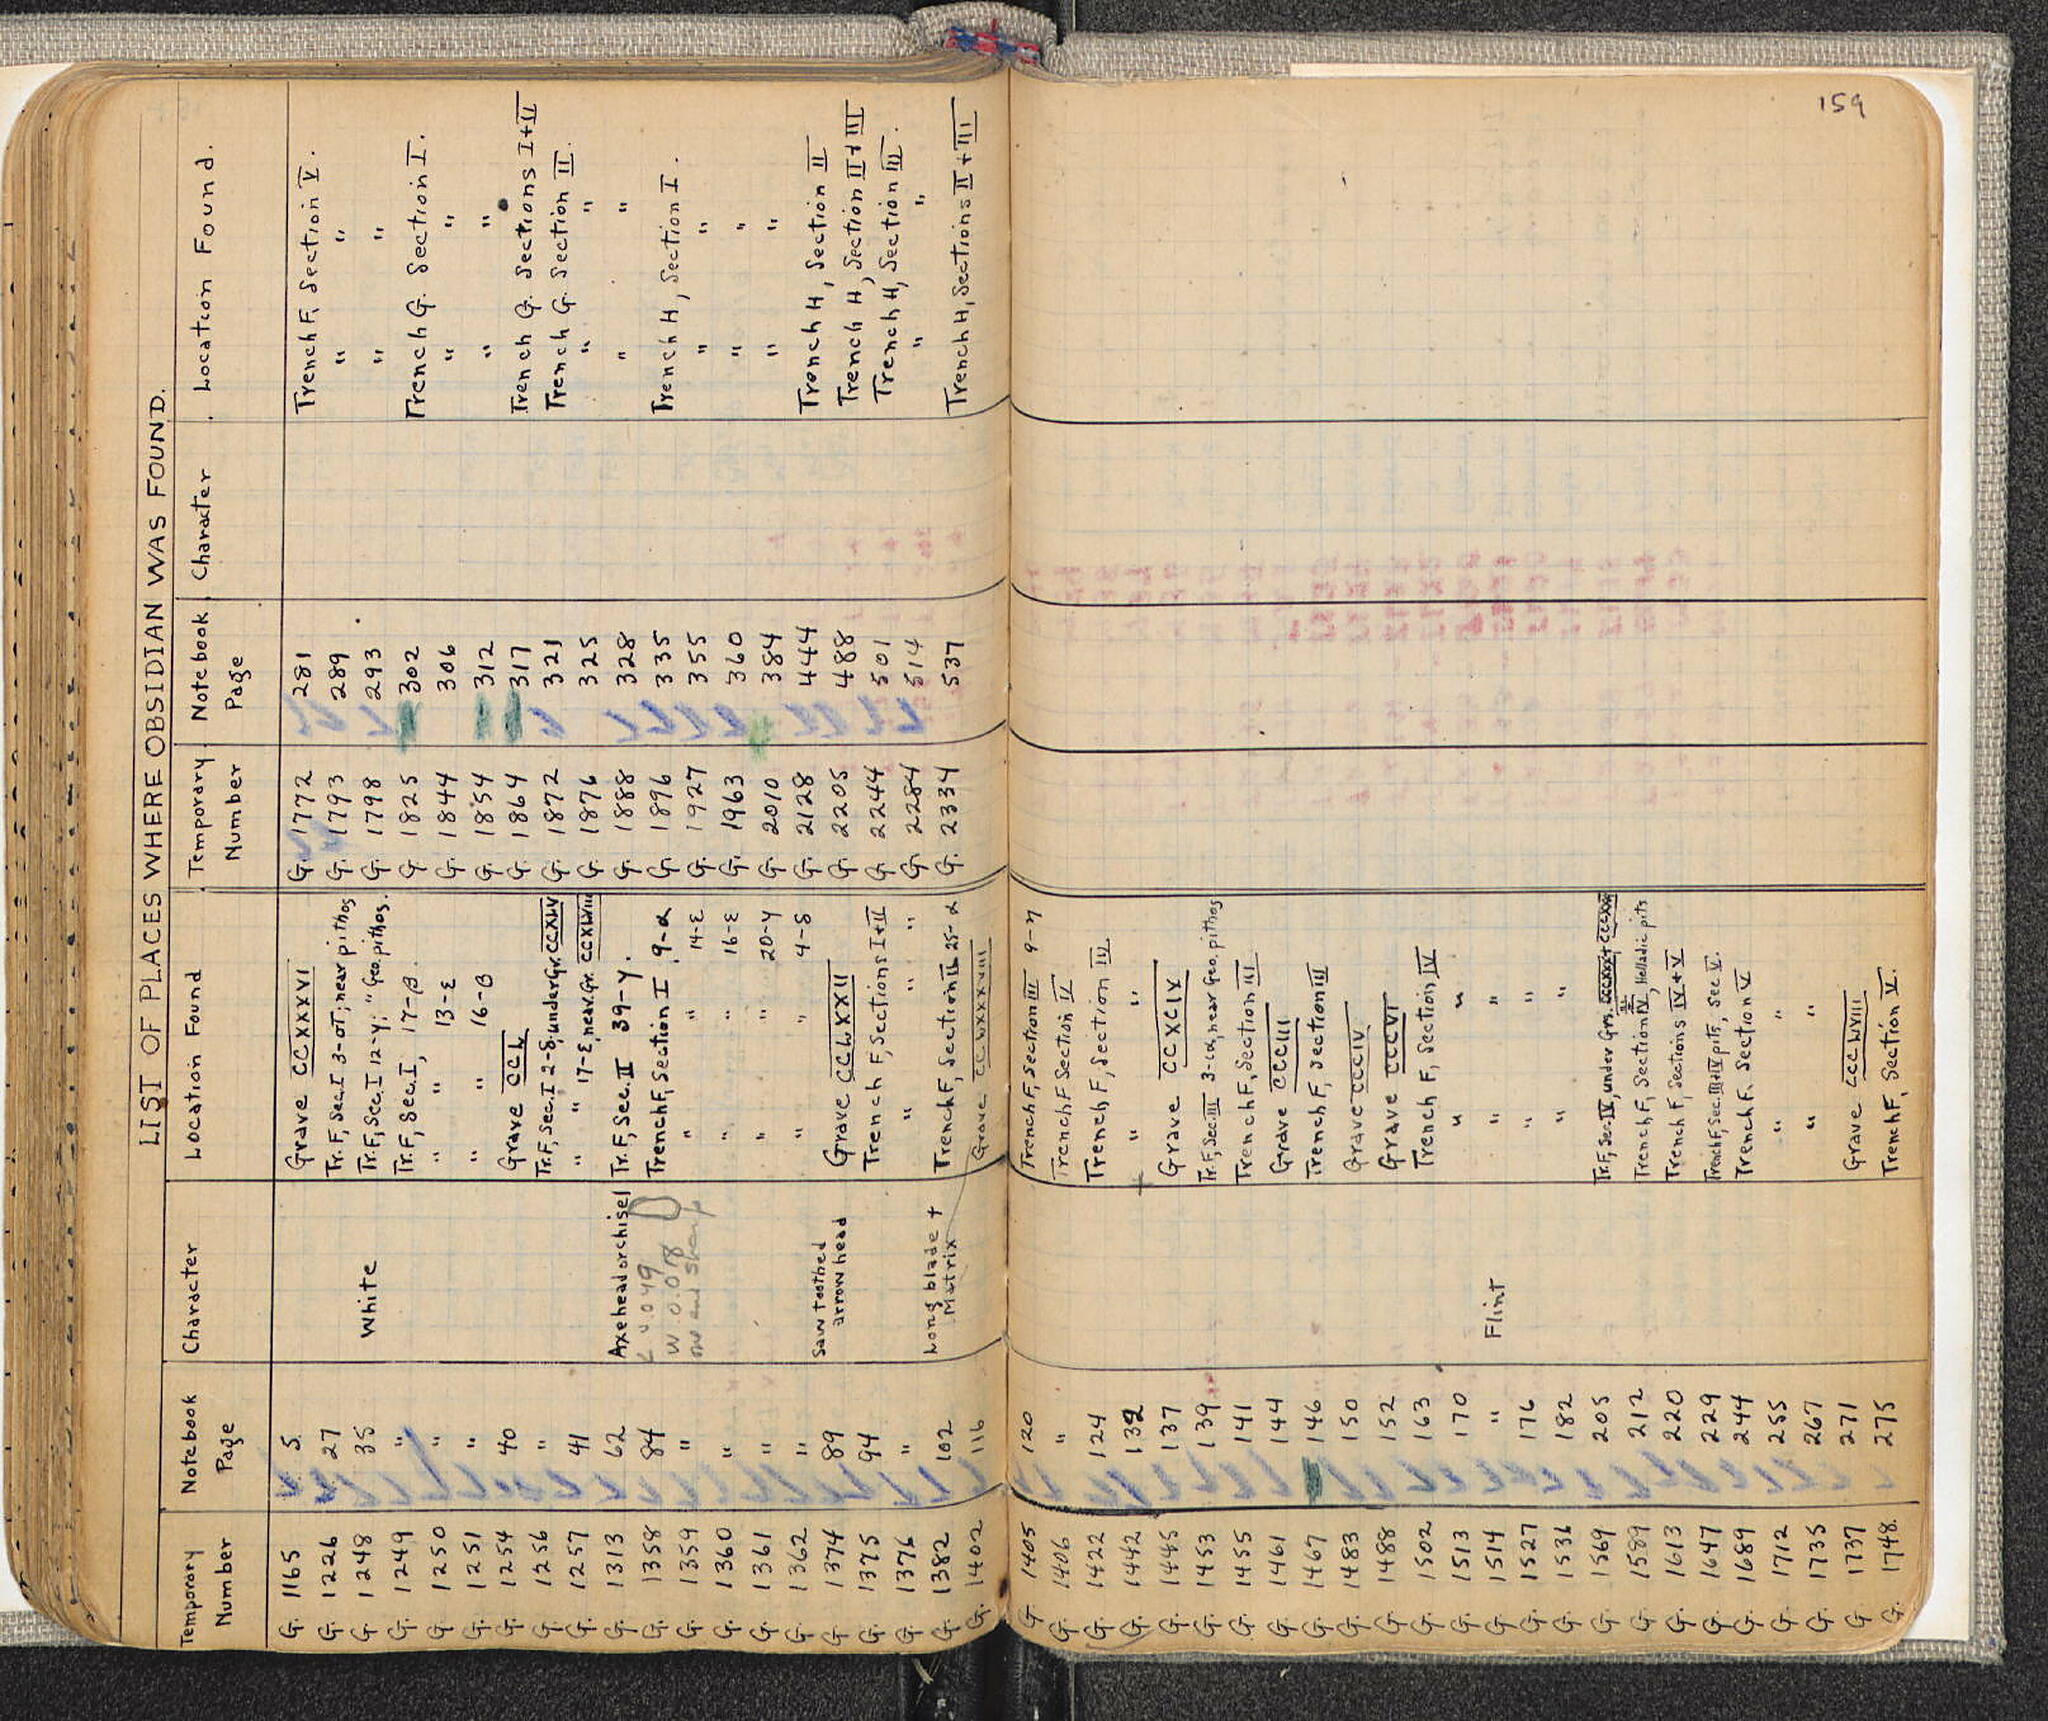 159
LIST OF PLACES WHERE OBSIDIAN WAS FOUND.
Temporary Number Notebook Page Character Location Found
G. 1165 5 Grave CCXXXVI
G. 1226 27 Tr. F, Sec. I 3-στ; near pithos
G. 1248 35 White Tr. F, Sec. I 12-γ; " Geo. pithos.
G. 1249 " Tr. F, Sec. I, 17-β.
G. 1250 " " " 13-ε
G. 1251 " " " 16-β
G. 1254 40 Grave CCL
G. 1256 " Tr. F, Sec. I 2-δ, under Gr. CCXLV
G. 1257 41 " 17-ε, near Gr. CCXLVIII
G. 1313 62 Axe head or chisel Tr. F, Sec. II 39-γ.
L 0.049
W 0.018
one end sharp
G. 1358 84 Trench F, Section I 9-α
G. 1359 " " " 14-ε
G. 1360 " " " 16-ε
G. 1361 " " " 20-γ
G. 1362 " " " 4-δ
G. 1374 89 Saw toothed arrow head Grave CCLXXII
G. 1375 94 Trench F, Sections I+II
G. 1376 " " " "
G. 1382 102 Long blade + Matrix Trench F, Section II 25-α
G. 1402 116 Grave CCLXXXVIII
G. 1405 120 Trench F, Section III 9-η
G. 1406 " Trench F Section IV
G. 1422 124 Trench F, Section IV
G. 1442 132 " "
G. 1445 137 Grave CCXCIX
G. 1453 139 Tr. F, Sec. III 3-ια, near Geo. pithos
G. 1455 141 Trench F, Section III
G. 1461 144 Grave CCCIII
G. 1467 146 Trench F, Section III
G. 1483 150 Grave CCCIV
G. 1488 152 Grave CCCVI
G. 1502 163 Trench F, Section IV
G. 1513 170 " "
G. 1514 " Flint " "
G. 1527 176 " "
G. 1536 182 " "
G. 1569 205 Tr. F, Sec. IV, under Grs.
G. 1589 212 Trench F, Section IV, Helladic pits
G. 1613 220 Trench F, Sections IV+V
G. 1647 229 Trench F, Sec. III+IV pits, Sec V.
G. 1689 244 Trench F. Section V
G. 1712 255 " "
G. 1735 267 " "
G. 1737 271 Grave CCCLVIII
G. 1748. 275 Trench F, Section V.
Temporary Number Notebook Page Character Location Found.
G. 1772 281 Trench F, Section V.
G. 1793 289 " "
G. 1798 293 " "
G. 1825 302 Trench G. Section I.
G. 1844 306 " "
G. 1854 312 " "
G. 1864 317 Trench G. Sections I+II
G. 1872 321 Trench G. Section II.
G. 1876 325 " "
G. 1888 328 " "
G. 1896 335 Trench H, Section I.
G. 1927 355 " "
G. 1963 360 " "
G. 2010 384 " "
G. 2128 444 Trench H, Section II
G. 2205 488 Trench H, Section II+III
G. 2244 501 Trench H, Section III.
G. 2284 514 " "
G. 2334 537 Trench H, Sections II+III